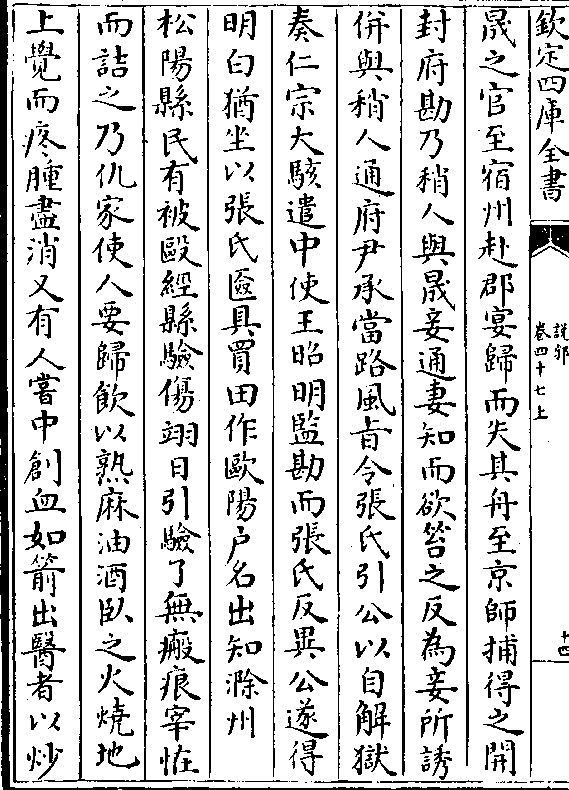 欽定四庫全書
說郛
卷四十七上
十四
晟之官至宿州赴郡宴歸而失其舟至京師捕得之開
封府勘乃稍人與晟妾通妻知而欲笞之反為妾所誘
併與稍人通府尹承當路風㫖令張氏引公以自解獄
奏仁宗大駭遣中使王昭明監勘而張氏反異公遂得
明白猶坐以張氏匳具買田作歐陽户名出知滁州
松陽縣民有被毆經縣驗傷翊日引驗了無瘢痕宰恠
而詰之乃仇家使人要歸飲以熟麻油酒臥之火燒地
上覺而疼腫盡消又有人嘗中創血如箭出醫者以炒